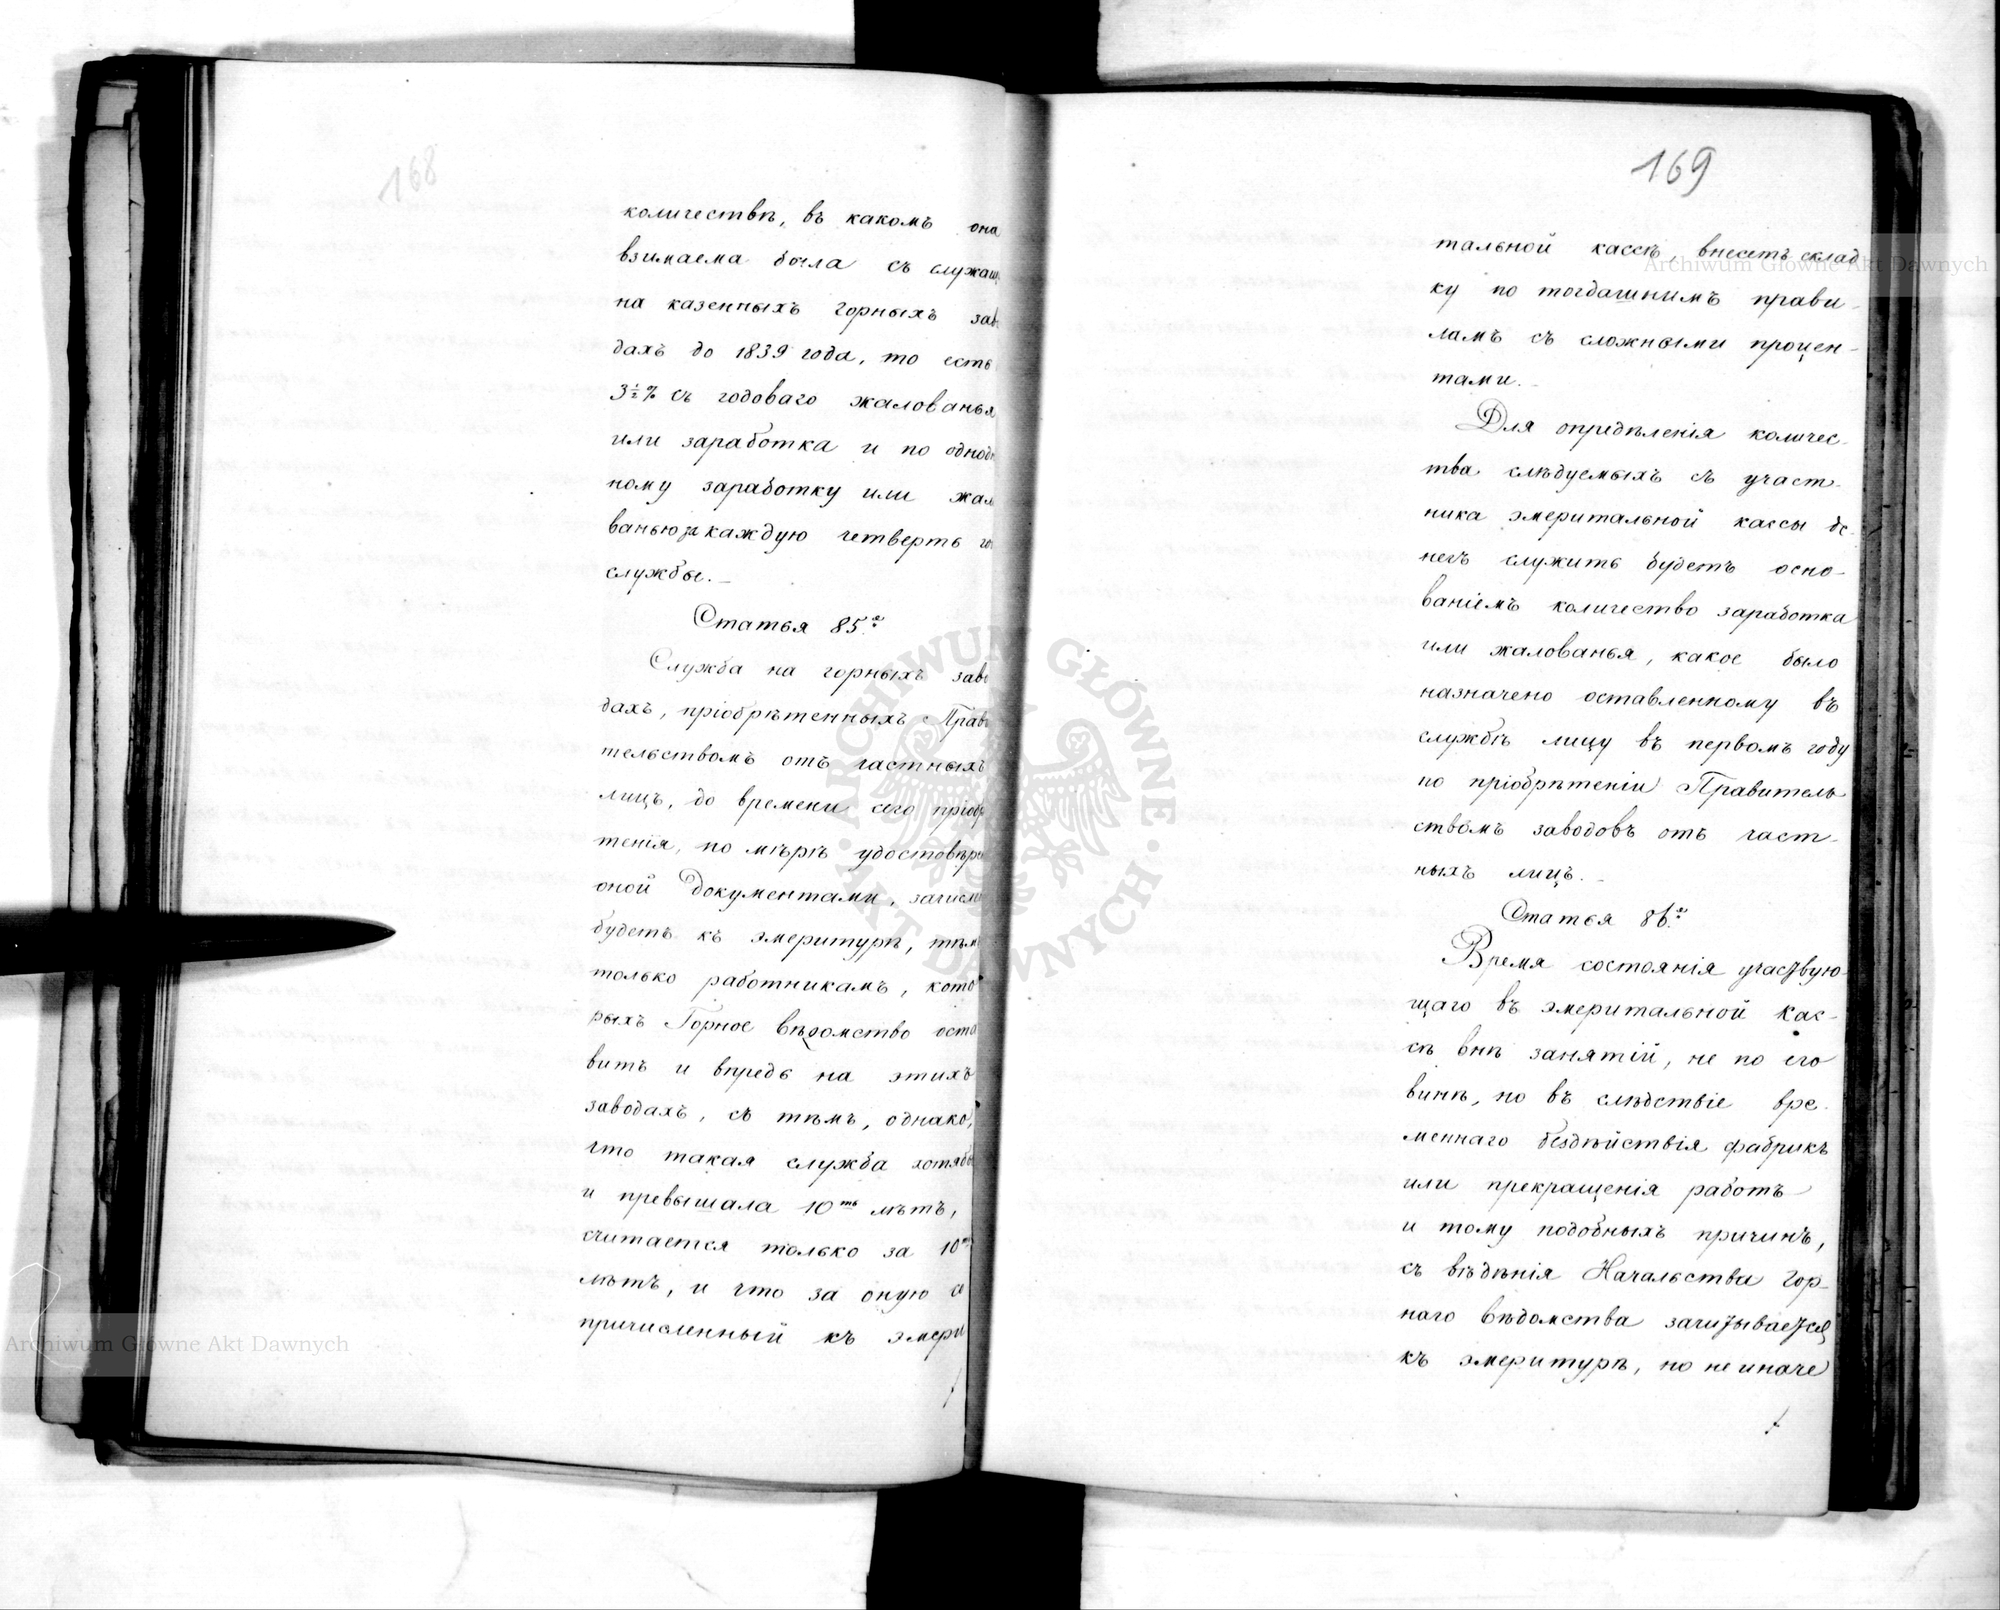 168
количествѣ, въ какомъ она
взимаема была съ служащ
на казенныхъ горныхъ заво
дахъ до 1839 года, то есть
3½% съ годоваго жалованья
или заработка и по однод
ному заработку или жал
ванью за каждую четверть го
службы. —
Статья 85.е
Служба на горныхъ заво
дахъ, пріобрѣтенныхъ Прави
тельствомъ отъ частныхъ
лицъ, до времени сего пріобр
тенія, по мѣрѣ удостовѣре
оной документами, зачисл
будетъ къ эмеритурѣ, тѣм
только работникамъ, кото
рыхъ Горное вѣдомство оста
витъ и впредь на этихъ
заводахъ, съ тѣмъ, однако,
что такая служба хотябы
и превышала 10ть лѣтъ,
считается только за 10ть
лѣтъ, и что за оную
причисленный къ эмери
169
тальной кассѣ, внесетъ склад
ку по тогдашнимъ прави-
ламъ съ сложными процен-
тами. —
Для опредѣленія количес-
тва слѣдуемыхъ съ участ-
ника эмеритальной кассы де-
негъ служить будетъ осно-
ваніемъ количество заработка
или жалованья, какое было
назначено оставленному въ
службѣ лицу въ первомъ году
по пріобрѣтеніи Правитель
ствомъ заводовъ отъ част-
ныхъ лицъ. —
Статья 86.е
Время состоянія участвую-
щаго въ эмеритальной кас-
сѣ внѣ занятій, не по его
винѣ, но въ слѣдствіе вре-
меннаго бездѣйствія фабрикъ
или прекращенія работъ
и тому подобныхъ причинъ,
съ вѣдѣнія Начальства Гор-
наго вѣдомства зачитывается
къ эмеритурѣ, но не иначе
Archiwum Główne Akt Dawnych
ARCHIWUM GŁÓWNE AKT DAWNYCH
Archiwum Główne Akt Dawnych